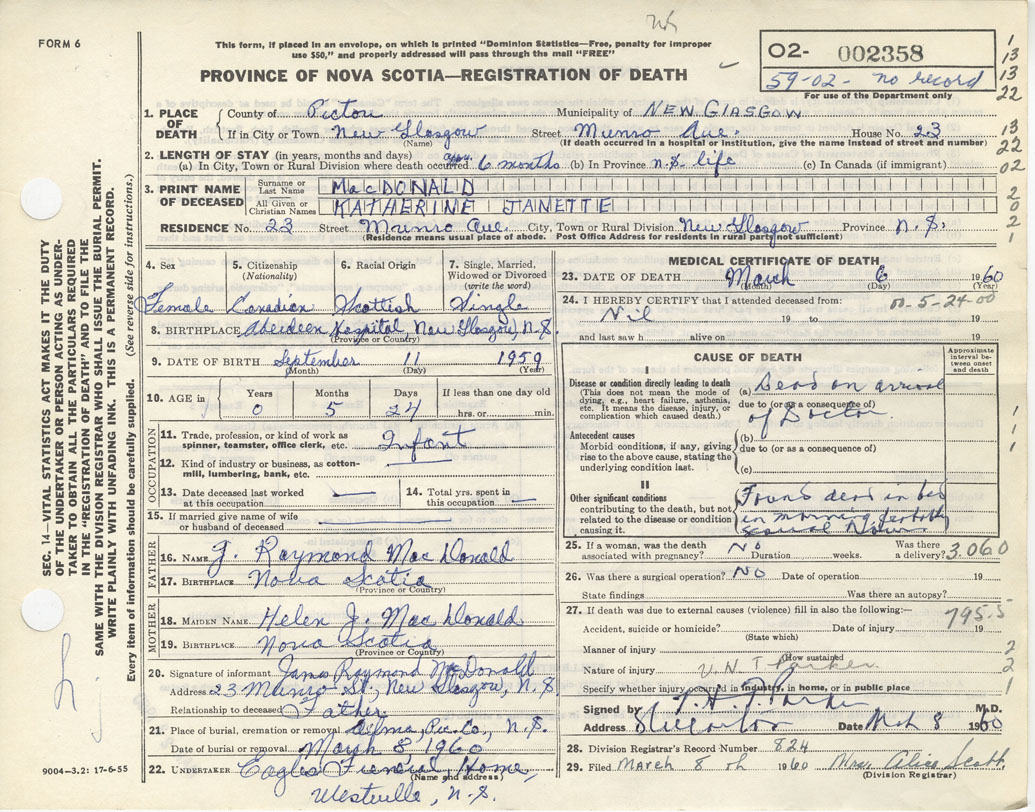 FORM 6
This form, if placed in an envelope, on which is printed "Dominion Statistics—Free, penalty for improper
use $50," and properly addressed will pass through the mail "FREE"
PROVINCE OF NOVA SCOTIA—REGISTRATION OF DEATH
O2- 002358
59-02- no record
For use of the Department only
1
13
13
22
13
22
02
2
0
2
1
1. PLACE OF DEATH
County of Pictou Municipality of NEW GLASGOW
If in City or Town New Glasgow Street Munro Ave. House No. 23
(Name) (If death occurred in a hospital or institution, give the name instead of street and number)
2. LENGTH OF STAY (in years, months and days)
(a) In City, Town or Rural Division where death occurred 6 months (b) In Province n.s. life (c) In Canada (if immigrant)
3. PRINT NAME OF DECEASED
Surname or Last Name MacDONALD
All Given or Christian Names KATHERINE JANETTE
RESIDENCE No. 23 Street Munro Ave. City, Town or Rural Division New Glasgow Province N.S.
(Residence means usual place of abode. Post Office Address for residents in rural parts not sufficient)
4. Sex Female
5. Citizenship (Nationality) Canadian
6. Racial Origin Scottish
7. Single, Married, Widowed or Divorced (write the word) Single
8. BIRTHPLACE Aberdeen Hospital, New Glasgow, N.S.
(Province or Country)
9. DATE OF BIRTH September 11 1959
(Month) (Day) (Year)
10. AGE in Years 0 Months 5 Days 24 If less than one day old hrs. or min.
OCCUPATION
11. Trade, profession, or kind of work as spinner, teamster, office clerk, etc. Infant
12. Kind of industry or business, as cotton-mill, lumbering, bank, etc.
13. Date deceased last worked at this occupation
14. Total yrs. spent in this occupation
15. If married give name of wife or husband of deceased
FATHER
16. NAME J. Raymond MacDonald
17. BIRTHPLACE Nova Scotia
(Province or Country)
MOTHER
18. MAIDEN NAME Helen J. MacDonald
19. BIRTHPLACE Nova Scotia
(Province or Country)
20. Signature of informant James Raymond McDonald
Address 23 Munro St., New Glasgow, N.S
Relationship to deceased Father
21. Place of burial, cremation or removal Pic. Co., N.S.
Date of burial or removal March 8 1960
22. UNDERTAKER Eagles Funeral Home,
(Name and address)
Westville, N.S.
MEDICAL CERTIFICATE OF DEATH
23. DATE OF DEATH March 6 1960
(Month) (Day) (Year)
24. I HEREBY CERTIFY that I attended deceased from: 00-5-24-00
Nil 19 to 19
and last saw h alive on 19
CAUSE OF DEATH
Approximate interval between onset and death
I
Disease or condition directly leading to death
(This does not mean the mode of dying, e.g., heart failure, asthenia, etc. It means the disease, injury, or complication which caused death.)
(a) Dead on arrival
due to (or as a consequence of)
of Doctor.
Antecedent causes
Morbid conditions, if any, giving rise to the above cause, stating the underlying condition last.
(b)
due to (or as a consequence of)
(c)
1
1
1
II
Other significant conditions
contributing to the death, but not related to the disease or condition causing it.
Found dead in bed
in morning
25. If a woman, was the death associated with pregnancy? No Duration weeks. Was there a delivery? 3.060
26. Was there a surgical operation? No Date of operation 19
State findings Was there an autopsy?
27. If death was due to external causes (violence) fill in also the following:—
795.5
Accident, suicide or homicide? Date of injury 19
(State which)
Manner of injury 2
(How sustained)
Nature of injury 2
Specify whether injury occurred in industry, in home, or in public place 1
Signed by Parker M.D.
Address Date Mch 8 1960
28. Division Registrar's Record Number 824
29. Filed March 8 th 1960 Mrs. Alice Scott
(Division Registrar)
SEC. 14—VITAL STATISTICS ACT MAKES IT THE DUTY
OF THE UNDERTAKER OR PERSON ACTING AS UNDER-
TAKER TO OBTAIN ALL THE PARTICULARS REQUIRED
IN THE "REGISTRATION OF DEATH" AND TO FILE THE
SAME WITH THE DIVISION REGISTRAR WHO SHALL ISSUE THE BURIAL PERMIT.
WRITE PLAINLY WITH UNFADING INK. THIS IS A PERMANENT RECORD.
Every item of information should be carefully supplied. (See reverse side for instructions.)
9004-3.2: 17-6-55